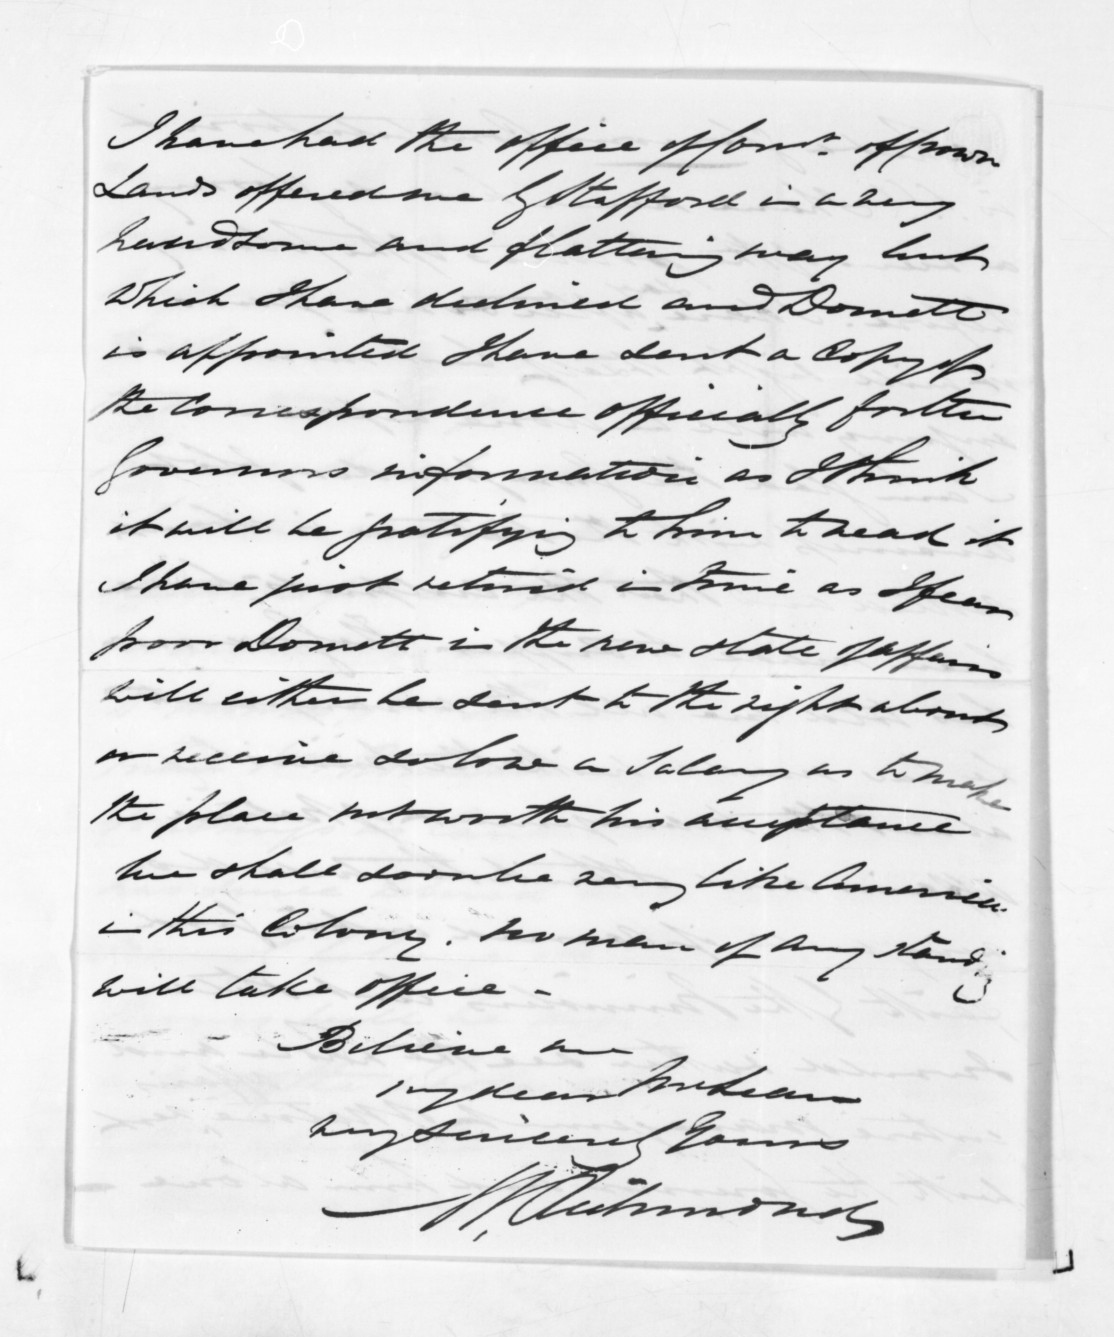 I have had the office of Comr. of Crown
Lands offered me by Stafford in a very
handsome and flattering way but
which I have declined and Domett
is appointed I have sent a Copy of
the Correspondence officially for the
Governors information as I think
it will be gratifying to him to read it
I have just retired in time as I fear
poor Domett in the new state of affairs
will either be sent to the right abouts
or receive so low a Salary as to make
the place not worth his acceptance
We shall soon be very like America
in this Colony. no man of any standing
will take office -
Believe me
my dear McLean
very sincerely Yours
Richmond